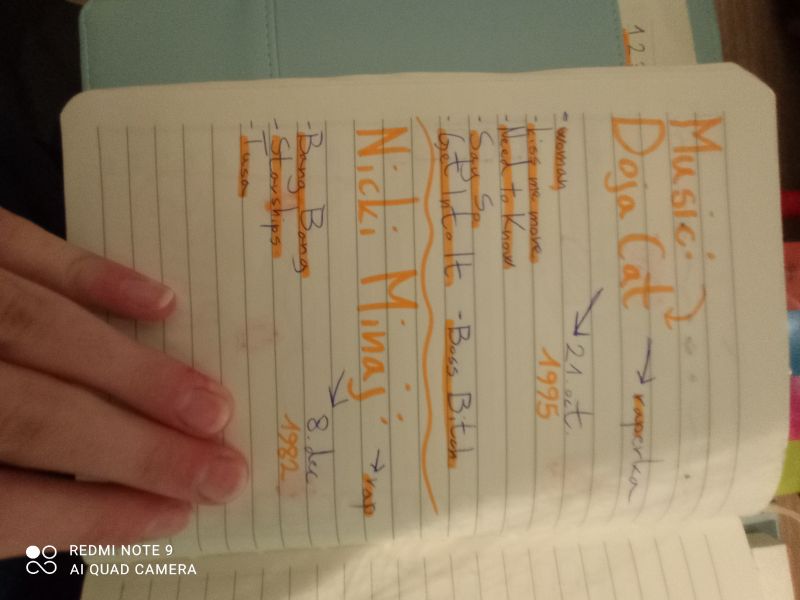 Music:
Doja Cat → raperka
- woman
- kiss me more
- Need to Know
- Say So
- Get Into It
- Boss Bitch
21. oct.
1995
Nicki Minaj: → rap
- Bang Bang
- Starships
- Tusa
8. dec
1982
12
REDMI NOTE 9
AI QUAD CAMERA